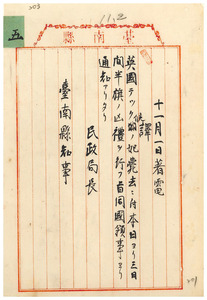 臺南縣
五
十一月一日著電
譯
英國テック公妃薨去ニ付本日ヨリ三日
間半旗ノ礼ヲ行フ旨同國領事ヨリ
通知アリタリ
民政局長
臺南縣知事